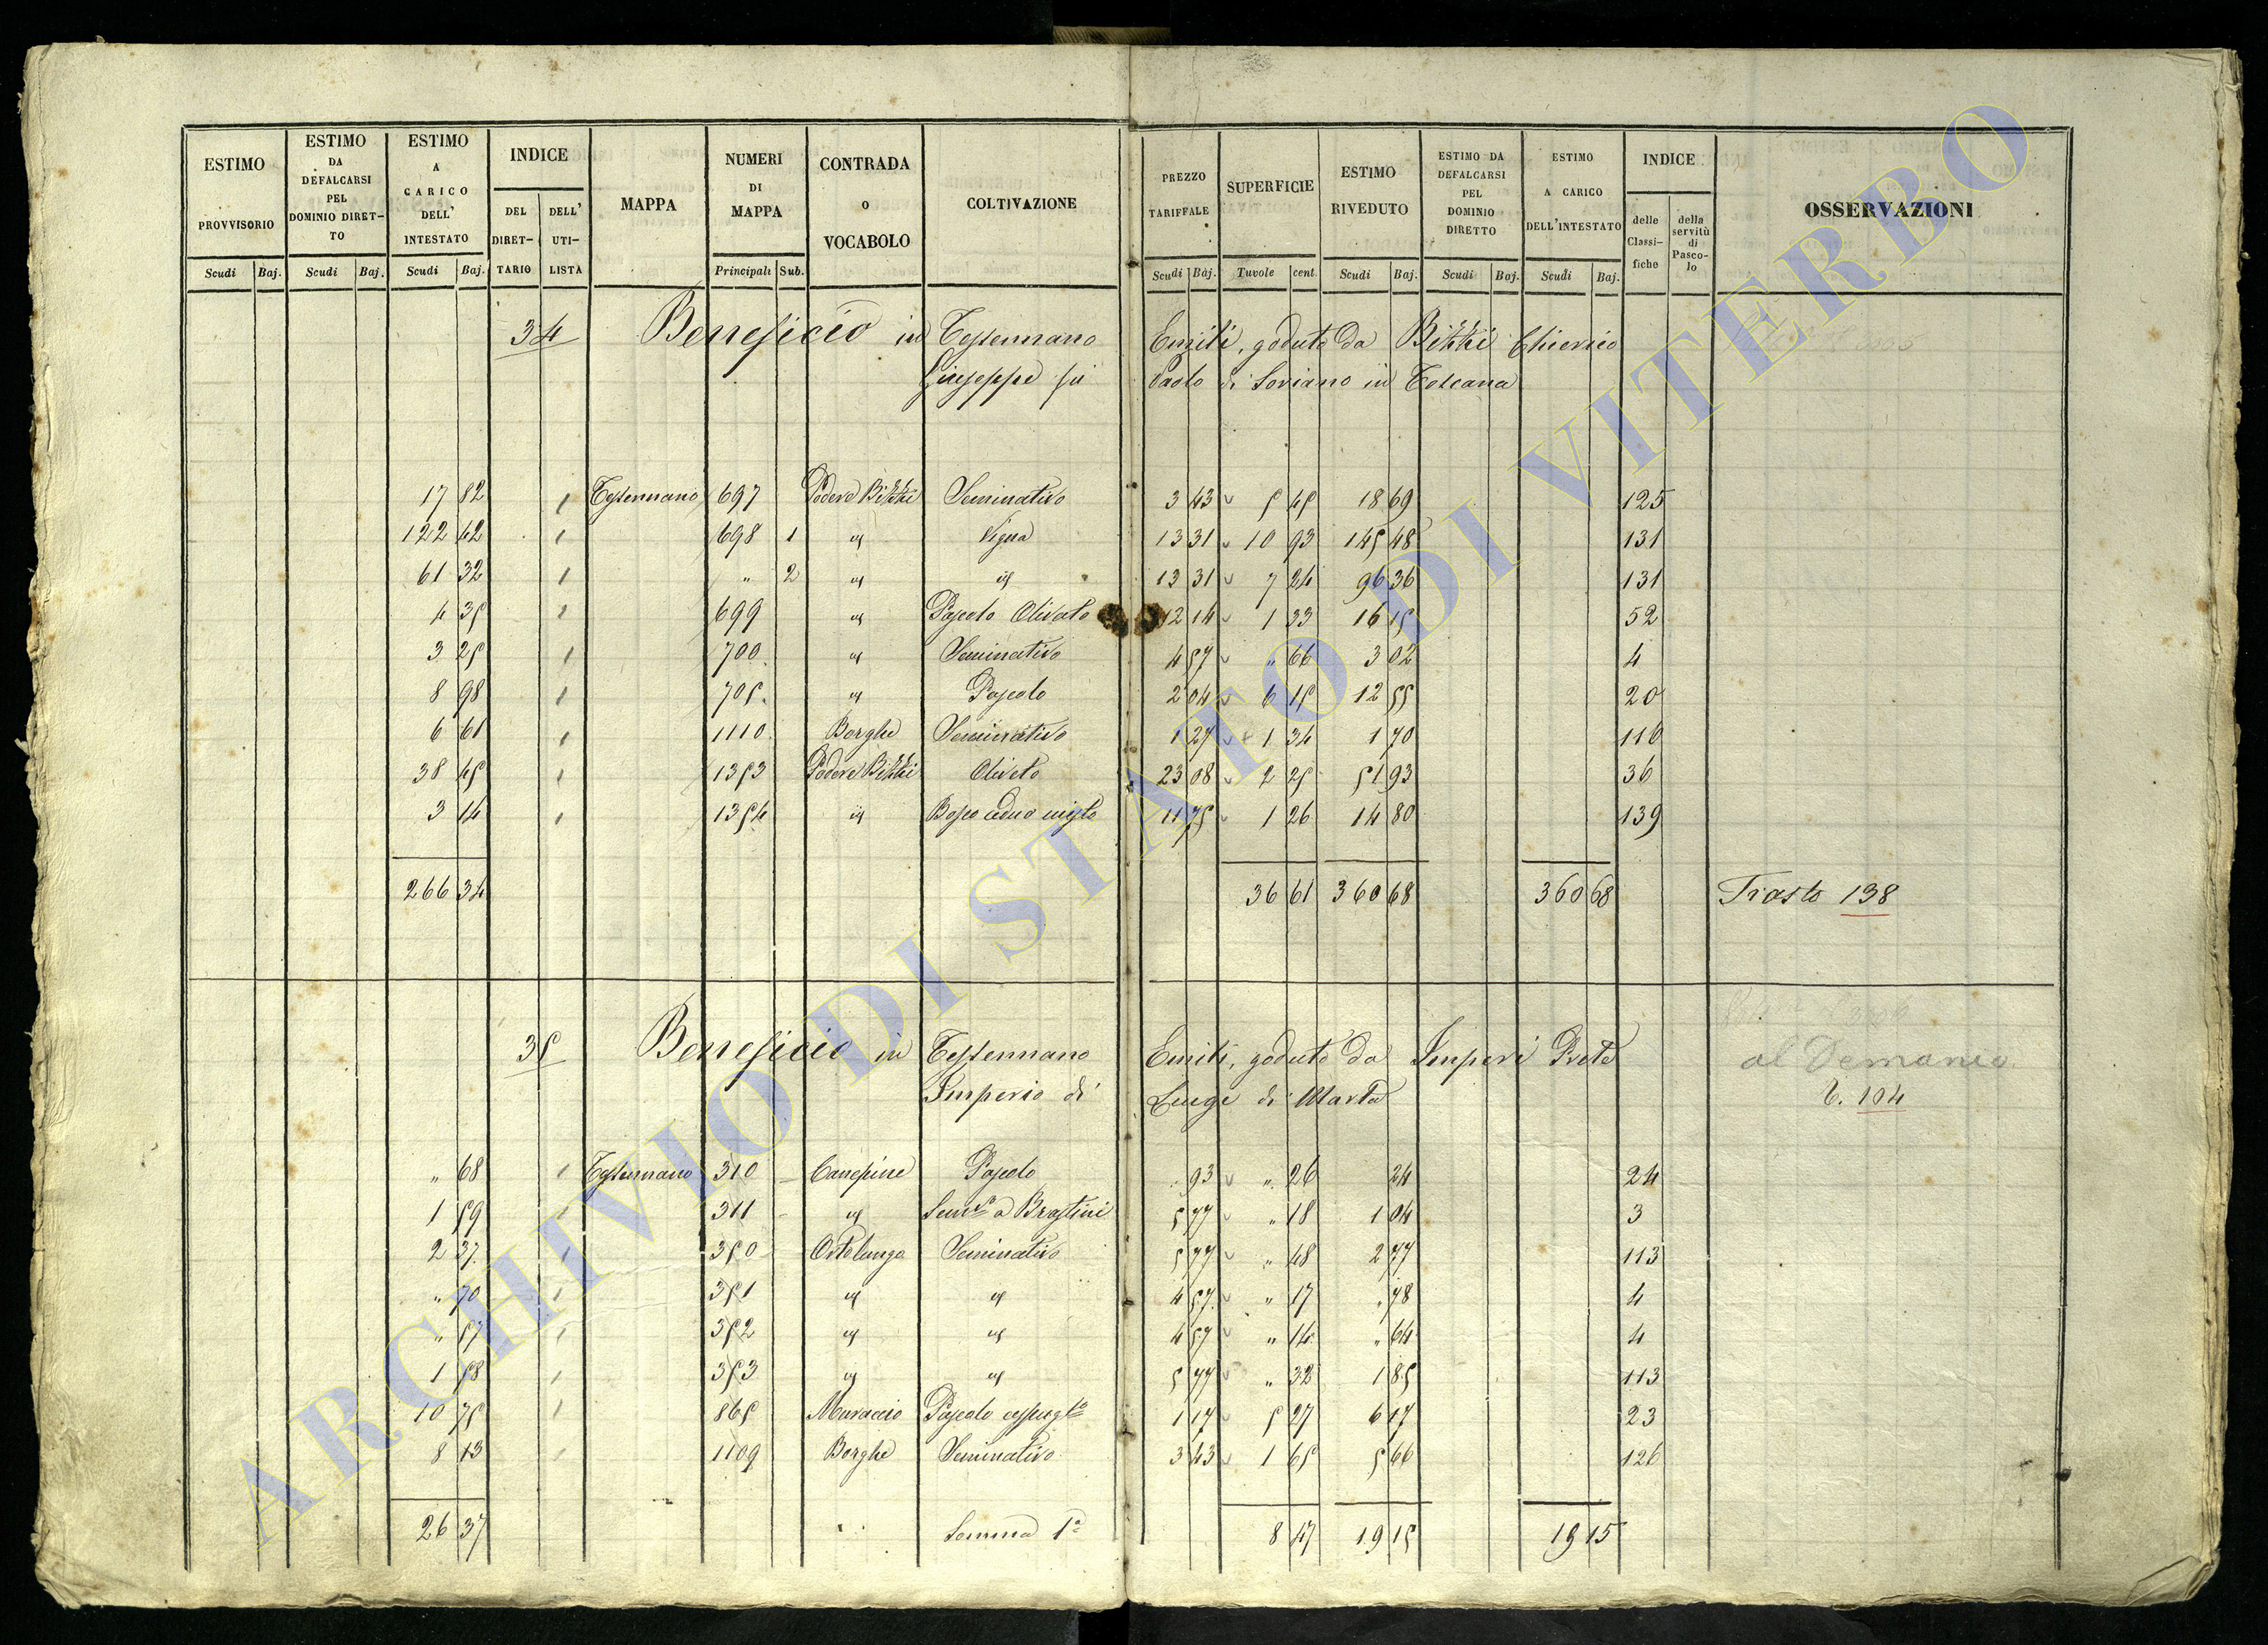 ESTIMO PROVVISORIO Scudi Baj.
ESTIMO DA DEFALCARSI PEL DOMINIO DIRET-TO Scudi Baj.
ESTIMO A CARICO DELL' INTESTATO Scudi Baj.
INDICE DEL DIRET-TARIO DELL' UTI-LISTA
MAPPA
NUMERI DI MAPPA Principali Sub.
CONTRADA O VOCABOLO
COLTIVAZIONE
PREZZO TARIFFALE Scudi Baj.
SUPERFICIE Tavole cent
ESTIMO RIVEDUTO Scudi Baj.
ESTIMO DA DEFALCARSI PEL DOMINIO DIRETTO Scudi Baj.
ESTIMO A CARICO DELL'INTESTATO Scudi Baj.
INDICE delle Classi-fiche della servitù di Pasco-lo
OSSERVAZIONI
34 Beneficio in Tessennano Emiti, goduto da Bizzi Chierico
Giuseppe fu Paolo di Soriano in Toscana
17 82 1 Tessennano 697 Podere Bizzi Seminativo 3 43 5 45 18 69 125
122 42 1 698 1 id Vigna 13 31 10 93 145 48 131
61 32 1 " 2 id id 13 31 7 24 96 36 131
4 35 1 699 id Pascolo Olivato 12 14 1 33 16 15 52
3 25 1 700 id Seminativo 4 57 " 66 3 02 4
8 98 1 705 id Pascolo 2 04 6 15 12 55 20
6 61 1 1110 Borghe Seminativo 1 27 1 34 1 70 116
38 45 1 1353 Podere Bizzi Oliveto 23 08 2 25 51 93 36
3 14 1 1354 id Bosco ceduo misto 11 75 1 26 14 80 139
266 34 36 61 360 68 360 68 Trasto 138
35 Beneficio in Tessennano Emiti, goduto da Imperi Prete
Imperio di Luigi di Marta
al Demanio
T. 104
" 68 1 Tessennano 310 Canepine Pascolo " 93 " 26 24 24
1 59 1 311 id Semvo a Brastini 5 77 " 18 1 04 3
2 37 1 350 Ortolungo Seminativo 5 77 " 48 2 77 113
" 70 1 351 id id 4 57 " 17 " 78 4
" 57 1 352 id id 4 57 " 14 " 64 4
1 58 1 353 id id 5 77 " 32 1 85 113
10 75 1 865 Muraccio Pascolo cespugto 1 17 5 27 6 17 23
8 13 1 1109 Borghe Seminativo 3 43 1 65 5 66 126
26 37 Somma 1a 8 47 19 15 19 15
ARCHIVIO DI STATO DI VITERBO